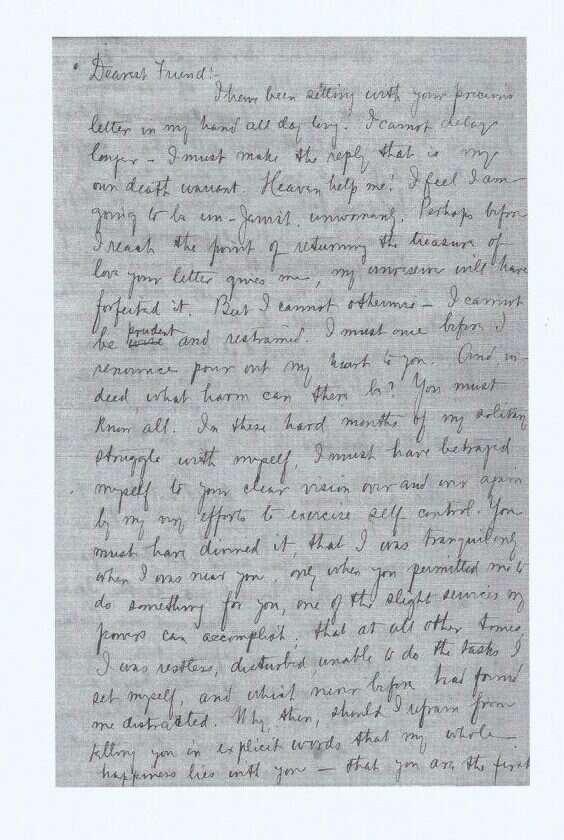 Dearest Friend!-
I have been sitting with your precious
letter in my hand all day long. I cannot delay
longer - I must make the reply that is my
own death warrant. Heaven help me! I feel I am
going to be un- unwomanly. Perhaps before
I reach the point of returning the treasure of
love your letter gives me, my unreserve will have
forfeited it. But I cannot otherwise - I cannot
be prudent and restrained. I must once before I
renounce pour out my heart to you. And in-
deed what harm can there be? You must
know all. In these hard months of my solitary
struggle with myself, I must have betrayed
myself to your clear vision over and over again
by my very efforts to exercise self control. You
must have divined it, that I was tranquil only
when I was near you, only when you permitted me to
do something for you, one of the slight services my
powers can accomplish; that at all other times,
I was restless, disturbed, unable to do the tasks I
set myself, and what never before had found
me distracted. Why, then, should I refrain from
telling you in explicit words that my whole
happiness lies with you - that you are the first